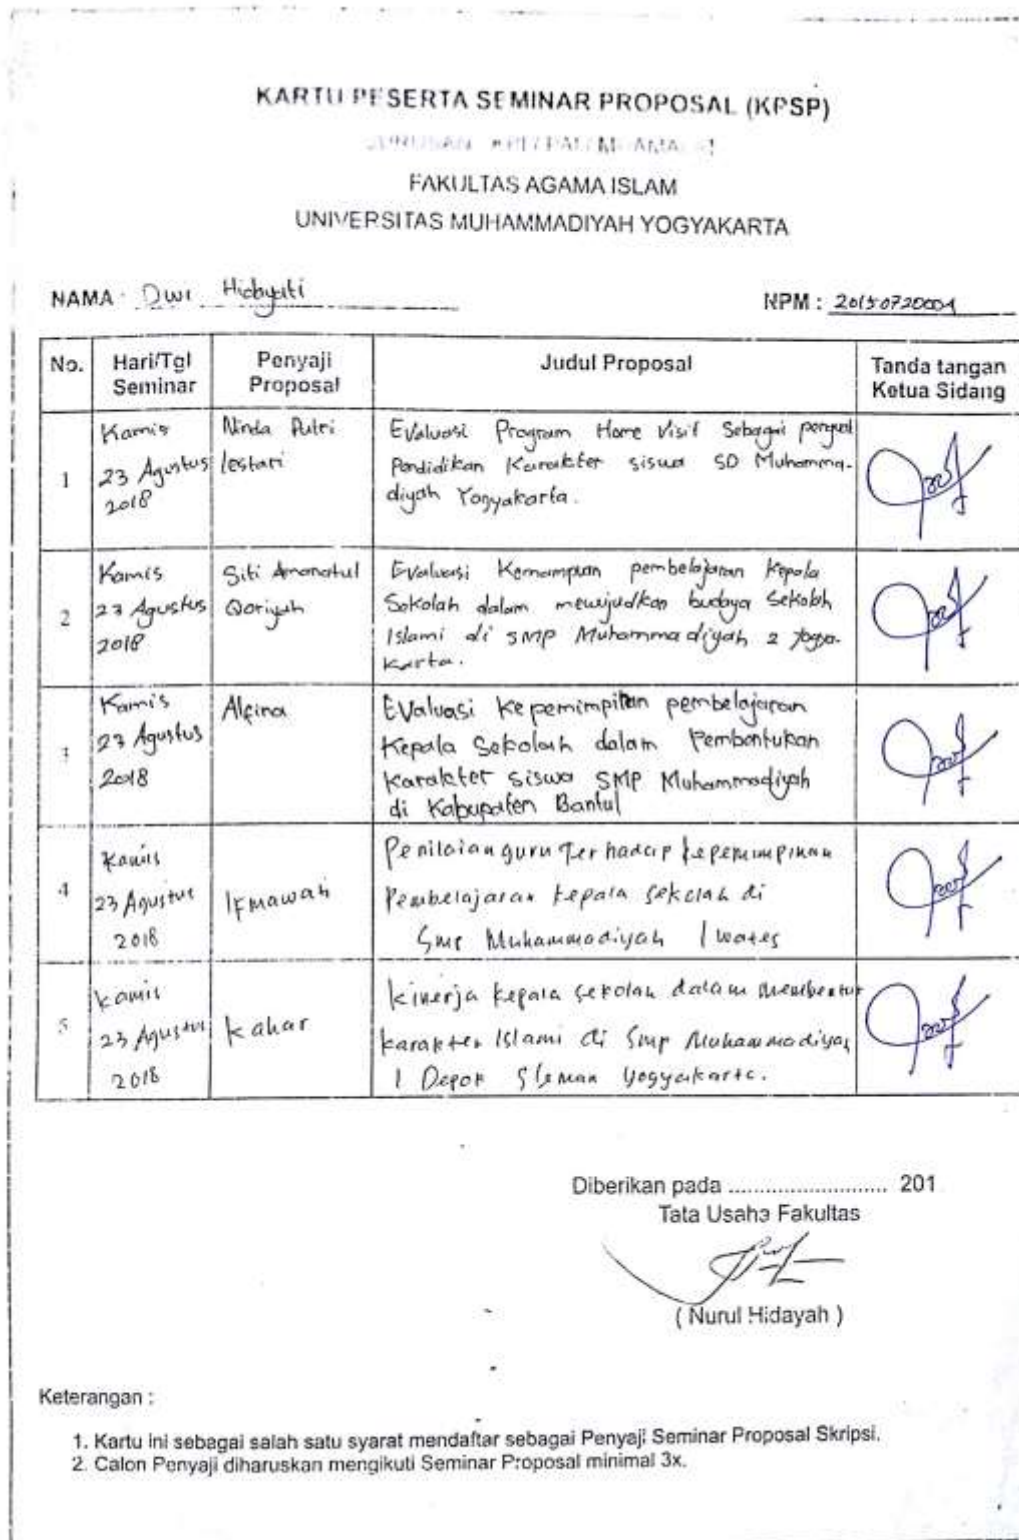 KARTU PESERTA SEMINAR PROPOSAL (KPSP)
JURUSAN
FAKULTAS AGAMA ISLAM
UNIVERSITAS MUHAMMADIYAH YOGYAKARTA
NAMA : Dwi Hidayati
NPM : 20150720004
No. Hari/Tgl Seminar Penyaji Proposal Judul Proposal Tanda tangan Ketua Sidang
1 Kamis 23 Agustus 2018
Ninda Putri lestari
Evaluasi Program Home Visit Sebagai
Pendidikan Karakter siswa SD Muhamma-
diyah Yogyakarta.
2 Kamis 23 Agustus 2018
Siti Amanatul Qoriyah
Evaluasi pembelajaran Kepala
Sekolah dalam mewujudkan budaya Sekolah
Islami di SMP Muhammadiyah 2 Yogya-
karta.
3 Kamis 23 Agustus 2018
Alfina
Evaluasi Kepemimpinan pembelajaran
Kepala Sekolah dalam Pembentukan
Karakter siswa SMP Muhammadiyah
di Kabupaten Bantul
4 Kamis 23 Agustus 2018
Irmawati
Penilaian guru Terhadap kepemimpinan
Pembelajaran kepala sekolah di
Smp Muhammadiyah 1 wates
5 kamis 23 Agustus 2018
kahar
kinerja kepala sekolah dalam membentuk
karakter Islami di Smp Muhammadiyah
1 Depok Sleman Yogyakarta.
Diberikan pada .......................... 201
Tata Usaha Fakultas
( Nurul Hidayah )
Keterangan :
1. Kartu ini sebagai salah satu syarat mendaftar sebagai Penyaji Seminar Proposal Skripsi.
2. Calon Penyaji diharuskan mengikuti Seminar Proposal minimal 3x.